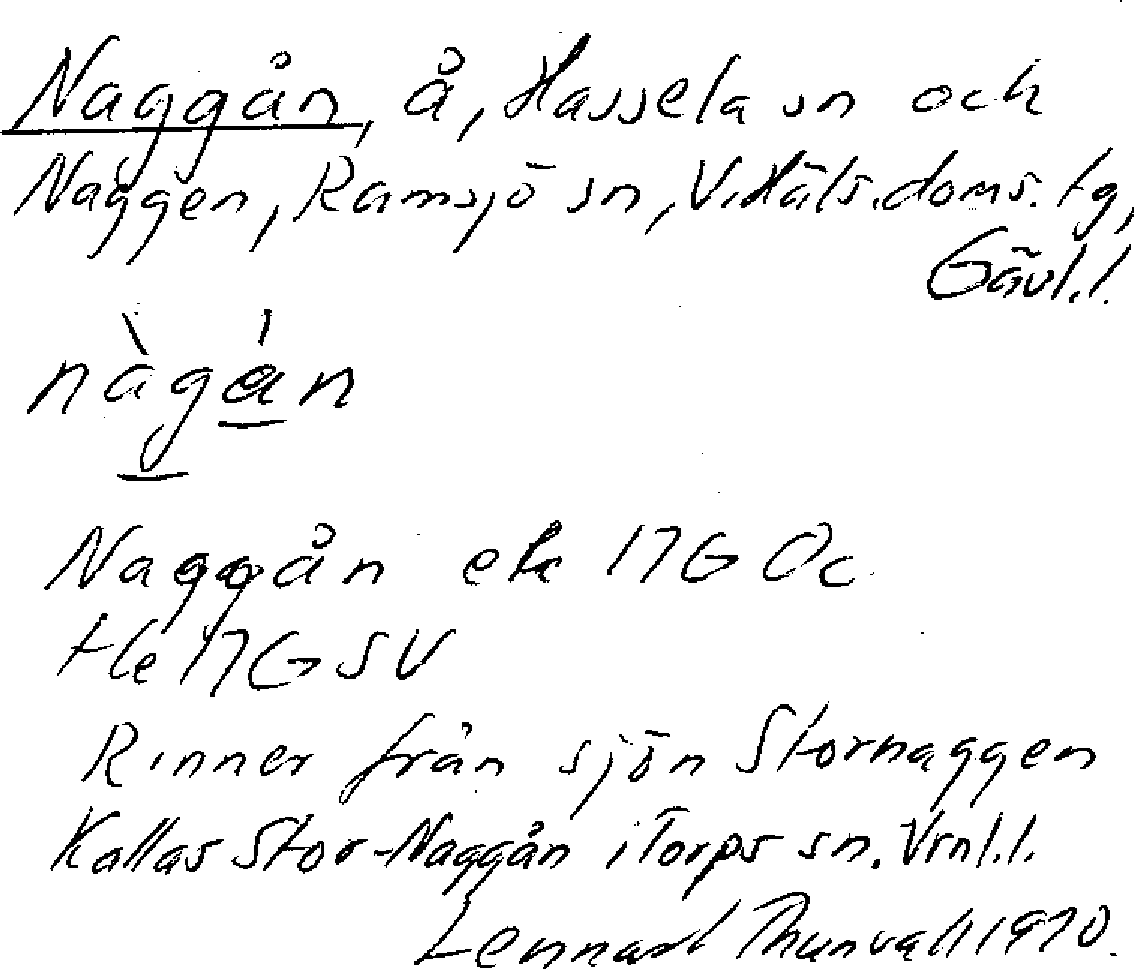 Naggån, å, Hassela sn och
Naggen, Ramsjö sn, V. Häls. doms. tg,
Gävl. l.
nàgán
Naggån ek 17G Oc
tle 17G SV
Rinner från sjön Stornaggen
Kallas Stor-Naggån i Torps sn. Vrnl. l.
Lennart Thunvall 1970.